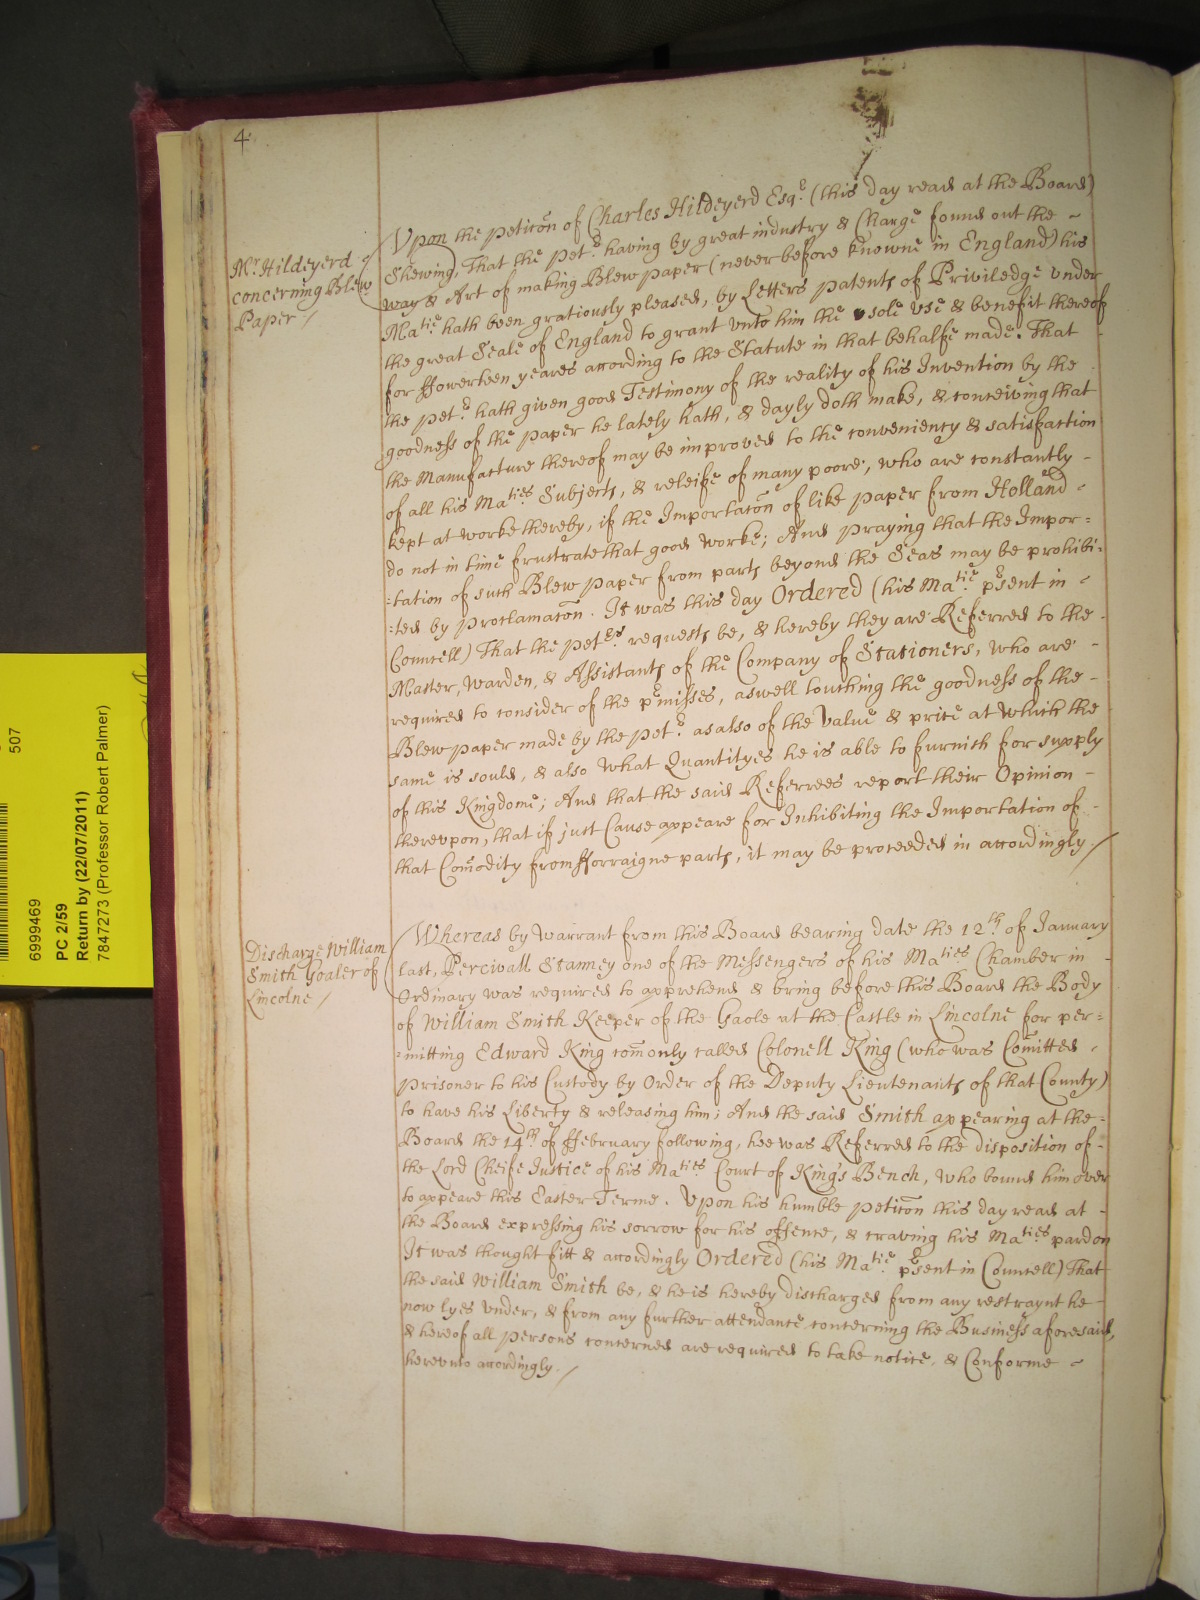 4
Mr. Hildeyerd
concerning Blew
Paper /
Vpon the peticōn of Charles Hildeyerd Esqr. (this day read at the Board)
Shewing, That the petr. having by great industry & Charge found out the ~
way & Art of making Blew paper (never before knowne in England) his
Matie. hath been gratiously pleased, by Letters patents of Priviledge vnder
the great Seale of England to grant vnto him the sole vse & benefit thereof
for ffowerteen yeares according to the Statute in that behalfe made. That
the petr. hath given good Testimony of the reality of his Invention by the
goodness of the paper he lately hath, & dayly doth make, & conceiving that
the Manufacture thereof may be improved to the conveniency & satisfaction
of all his Maties Subjects, & releife of many poore, who are constantly -
kept at worke thereby, if the Importacōn of like paper from Holland -
do not in time frustrate that good worke; And praying that the Impor=
:tation of such Blew paper from parts beyond the Seas may be prohibi=
:ted by proclamacōn. It was this day Ordered (his Matie. p̄sent in -
Councell) That the peters requests be, & hereby they are Referred to the -
Master, Warden, & Assistants of the Company of Stationers, who are -
required to consider of the p̄misses, aswell touching the goodness of the -
Blew paper made by the petr. as also of the Value & price at which the
same is sould, & also what Quantityes he is able to furnish for supply
of this Kingdome; And that the said Referrees report their Opinion -
therevpon, that if just Cause appeare for Inhibiting the Importation of -
that Com̄odity from fforraigne parts, it may be proceeded in accordingly. /
Discharge William
Smith Goaler of
Lincolne /
Whereas by Warrant from this Board bearing date the 12th of January
last, Percivall Stanney one of the Messengers of his Maties Chamber in -
Ordinary was required to apprehend & bring before this Board the Body
of William Smith Keeper of the Gaole at the Castle in Lincolne for per=
=mitting Edward King com̄only called Colonell King (who was Com̄itted -
prisoner to his Custody by Order of the Deputy Lieutenants of that County)
to have his Liberty & releasing him; And the said Smith appearing at the =
Board the 14th of ffebruary following, hee was Referred to the disposition of -
the Lord Cheife Justice of his Maties Court of Kings Bench, who bound him over
to appeare this Easter Terme. Vpon his humble peticōn this day read at -
the Board expressing his sorrow for his offence, & craving his Maties pardon
It was thought fitt & accordingly Ordered (his Matie. p̄sent in Councell) That
the said William Smith be, & he is hereby discharged from any restraynt he -
now lyes vnder, & from any further attendance concerning the Business aforesaid,
& hereof all persons concerned are required to take notice, & Conforme ~
herevnto accordingly. /
507
6999469
PC 2/59
Return by (22/07/2011)
7847273 (Professor Robert Palmer)